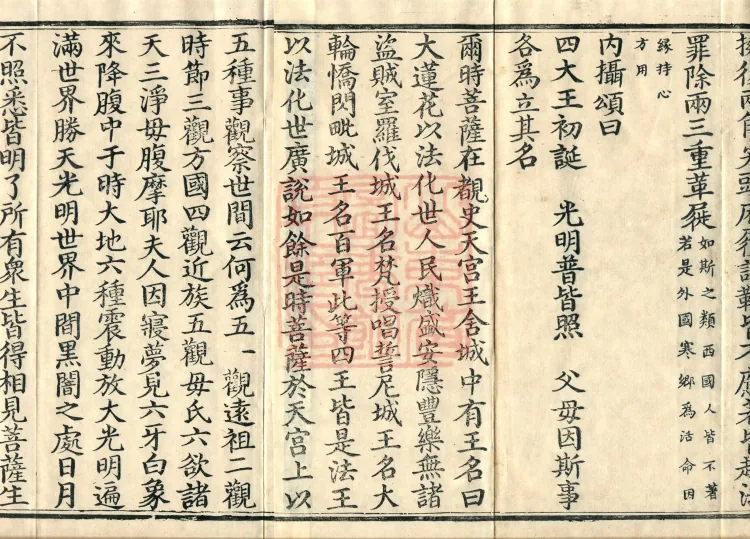 罪除兩三重革屣
如斯之類西國人皆不著
若是外國寒鄉爲活命因
緣持心
方用
内攝頌曰
四大王初誕　光明普皆照　父母因斯事
各爲立其名
爾時菩薩在覩史天宮王舍城中有王名曰
大蓮花以法化世人民熾盛安隱豐樂無諸
盜賊室羅伐城王名梵授唱誓尼城王名大
輪憍閃毗城王名百軍此等四王皆是法王
以法化世廣說如餘是時菩薩於天宮上以
五種事觀察世間云何爲五一觀遠祖二觀
時節三觀方國四觀近族五觀母氏六欲諸
天三淨母腹摩耶夫人因寢夢見六牙白象
來降腹中于時大地六種震動放大光明遍
滿世界勝天光明世界中間黑闇之處日月
不照悉皆明了所有衆生皆得相見菩薩生